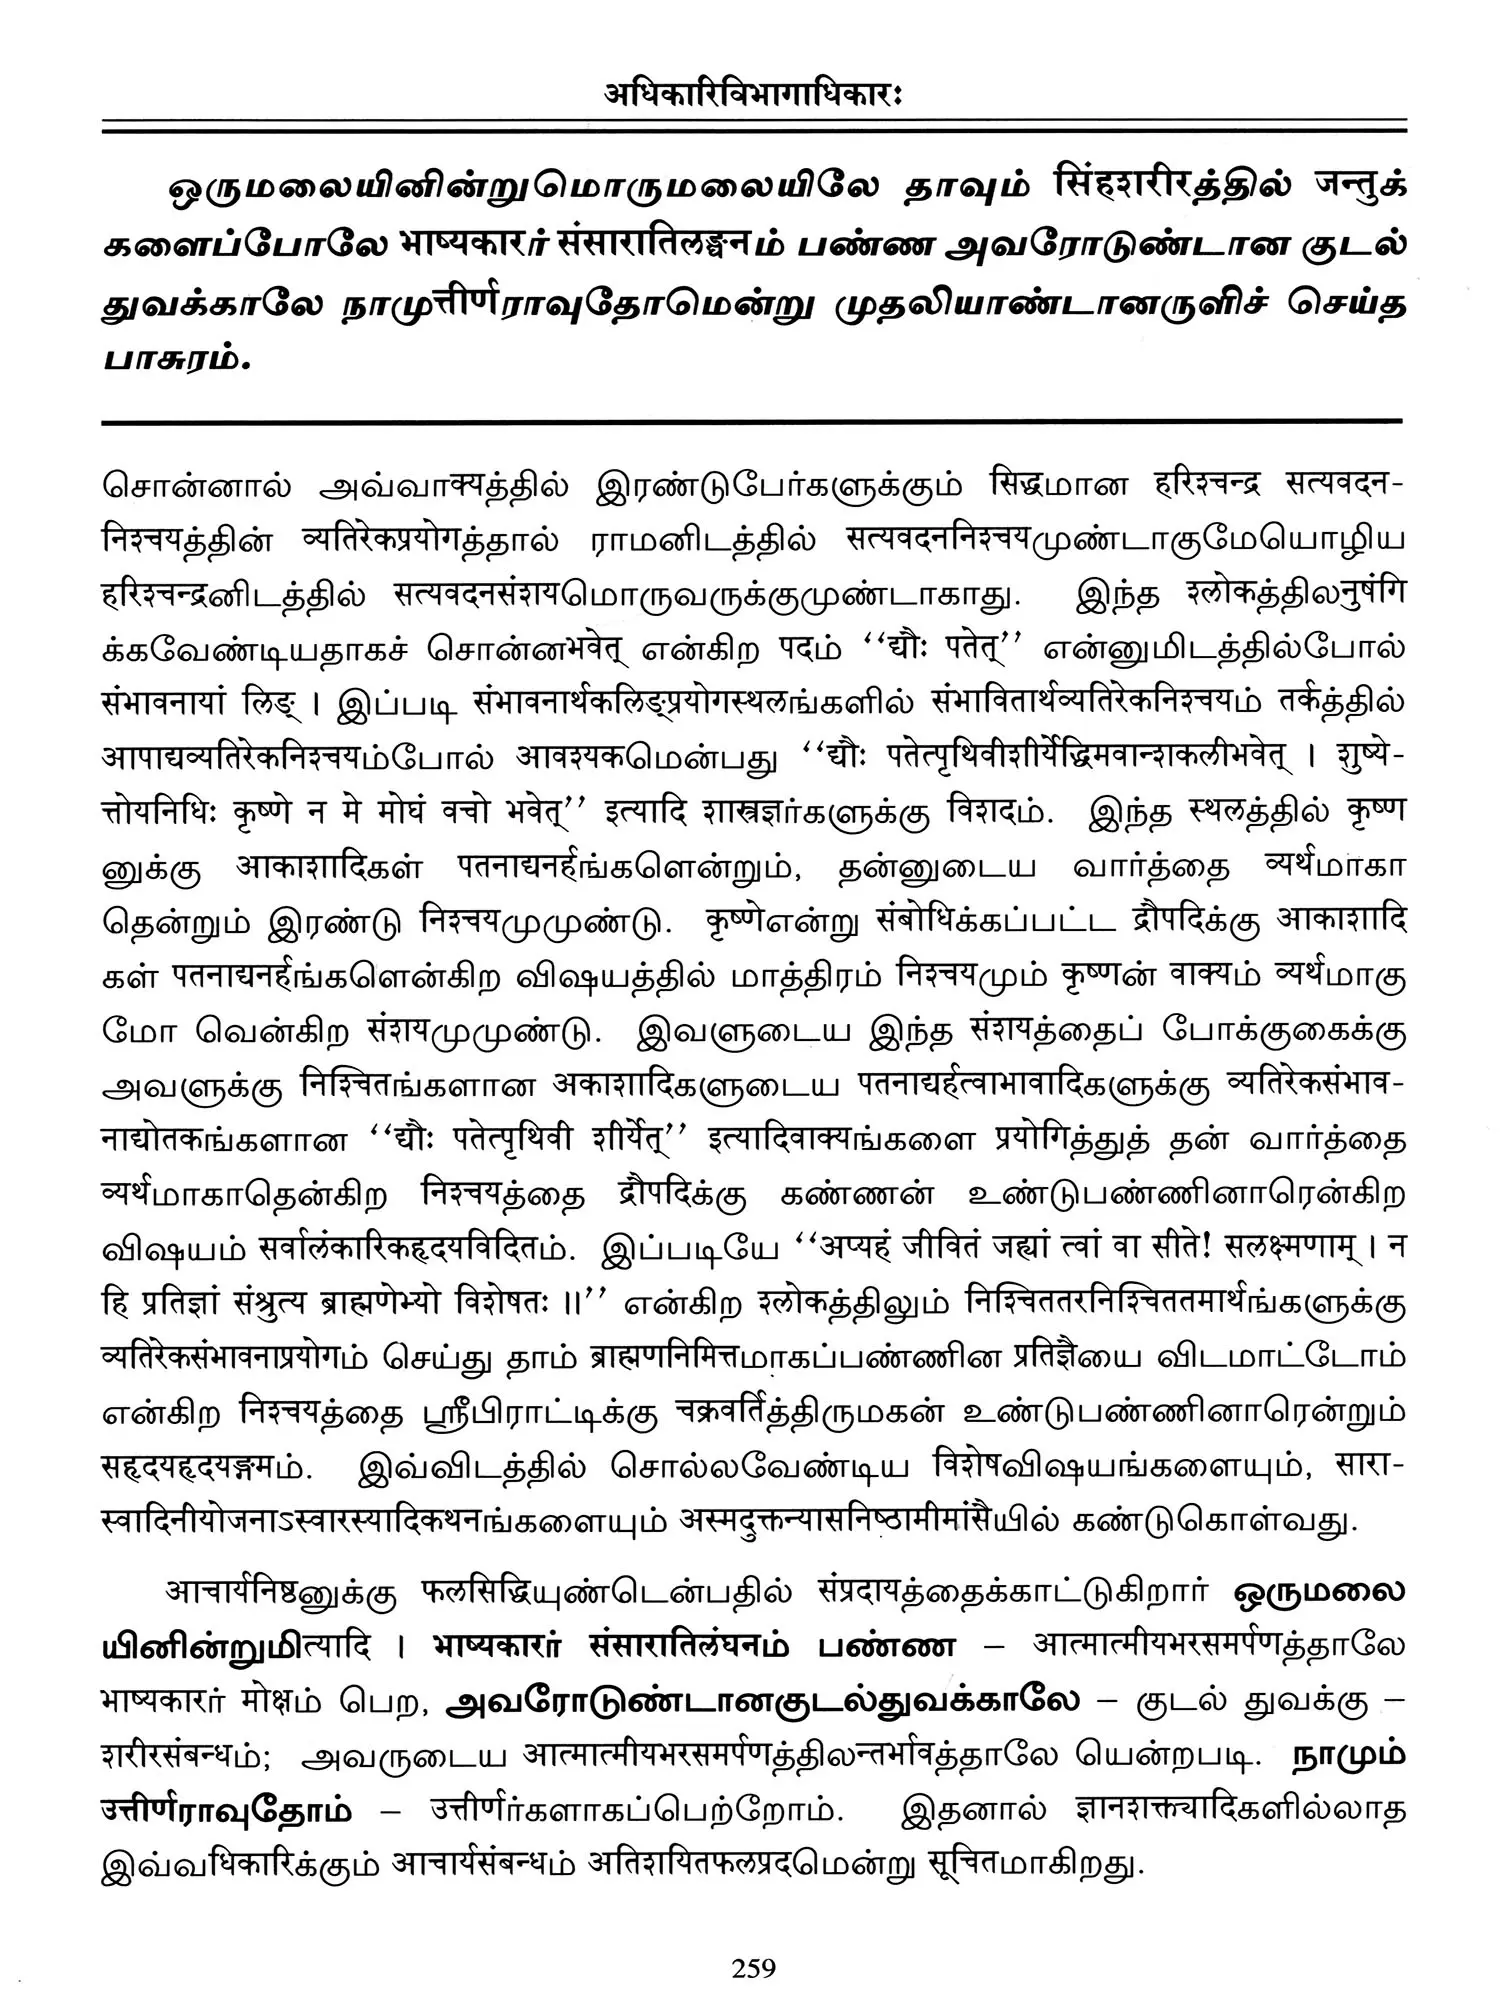 अधिकारिविभागाधिकारः
ஒருமலையினின்றுமொருமலையிலே தாவும் सिंहशरीरத்தில் जन्तुக்
களைப்போலே भाष्यकारர் संसारातिलङ्घनம் பண்ண அவரோடுண்டான குடல்
துவக்காலே நாமுत्तीर्णராவுதோமென்று முதலியாண்டானருளிச் செய்த
பாசுரம்.
சொன்னால் அவ்வாक्यத்தில் இரண்டுபேர்களுக்கும் सिद्धமான हरिश्चन्द्र सत्यवदन-
निश्चयத்தின் व्यतिरेकप्रयोगத்தால் ராமனிடத்தில் सत्यवदननिश्चयமுண்டாகுமேயொழிய
हरिश्चन्द्रனிடத்தில் सत्यवदनसंशयமொருவருக்குமுண்டாகாது. இந்த श्लोकத்திலनुषंगि
க்கவேண்டியதாகச் சொன்னभवेत् என்கிற पदம் ‘‘द्यौः पतेत्’’ என்னுமிடத்தில்போல்
संभावनायां लिङ् । இப்படி संभावनार्थकलिङ्प्रयोगस्थलங்களில் संभावितार्थव्यतिरेकनिश्चयம் तर्कத்தில்
आपाद्यव्यतिरेकनिश्चयம்போல் आवश्यकமென்பது ‘‘द्यौः पतेत्पृथिवीशीर्येद्धिमवान्शकलीभवेत् । शुष्ये-
त्तोयनिधिः कृष्णे न मे मोघं वचो भवेत्’’ इत्यादि शास्त्रज्ञர்களுக்கு विशदம். இந்த स्थलத்தில் कृष्ण
னுக்கு आकाशादिகள் पतनाद्यनर्हங்களென்றும், தன்னுடைய வார்த்தை व्यर्थமாகா
தென்றும் இரண்டு निश्चयமுமுண்டு. कृष्णेஎன்று संबोधिக்கப்பட்ட द्रौपदिக்கு आकाशादि
கள் पतनाद्यनर्हங்களென்கிற விஷயத்தில் மாத்திரம் निश्चयமும் कृष्णன் वाक्यம் व्यर्थமாகு
மோ வென்கிற संशयமுமுண்டு. இவளுடைய இந்த संशयத்தைப் போக்குகைக்கு
அவளுக்கு निश्चितங்களான अकाशादिகளுடைய पतनाद्यर्हत्वाभावादिகளுக்கு व्यतिरेकसंभाव-
नाद्योतकங்களான ‘‘द्यौः पतेत्पृथिवी शीर्येत्’’ इत्यादिवाक्यங்களை प्रयोगिத்துத் தன் வார்த்தை
व्यर्थமாகாதென்கிற निश्चयத்தை द्रौपदिக்கு கண்ணன் உண்டுபண்ணினாரென்கிற
விஷயம் सर्वालंकारिकहृदयविदितம். இப்படியே ‘‘अप्यहं जीवितं जह्यां त्वां वा सीते! सलक्ष्मणाम् । न
हि प्रतिज्ञां संश्रुत्य ब्राह्मणेभ्यो विशेषतः ॥’’ என்கிற श्लोकத்திலும் निश्चिततरनिश्चिततमार्थங்களுக்கு
व्यतिरेकसंभावनाप्रयोगம் செய்து தாம் ब्राह्मणनिमित्तமாகப்பண்ணின प्रतिज्ञैயை விடமாட்டோம்
என்கிற निश्चयத்தை ஸ்ரீபிராட்டிக்கு चक्रवर्तिத்திருமகன் உண்டுபண்ணினாரென்றும்
सहृदयहृदयङ्गमம். இவ்விடத்தில் சொல்லவேண்டிய विशेषவிஷயங்களையும், सारा-
स्वादिनीयोजनाऽस्वारस्यादिकथनங்களையும் अस्मदुक्तन्यासनिष्ठामीमांसैயில் கண்டுகொள்வது.
आचार्यनिष्ठனுக்கு फलसिद्धिயுண்டென்பதில் संप्रदायத்தைக்காட்டுகிறார் ஒருமலை
யினின்றுமிत्यादि । भाष्यकारர் संसारातिलंघनம் பண்ண – आत्मात्मीयभरसमर्पणத்தாலே
भाष्यकारர் मोक्षம் பெற, அவரோடுண்டானகுடல்துவக்காலே – குடல் துவக்கு –
शरीरसंबन्धம்; அவருடைய आत्मात्मीयभरसमर्पणத்திலन्तर्भावத்தாலே யென்றபடி. நாமும்
उत्तीर्णராவுதோம் – उत्तीर्णர்களாகப்பெற்றோம். இதனால் ज्ञानशक्त्यादिகளில்லாத
இவ்வधिकारिக்கும் आचार्यसंबन्धம் अतिशयितफलप्रदமென்று सूचितமாகிறது.
259